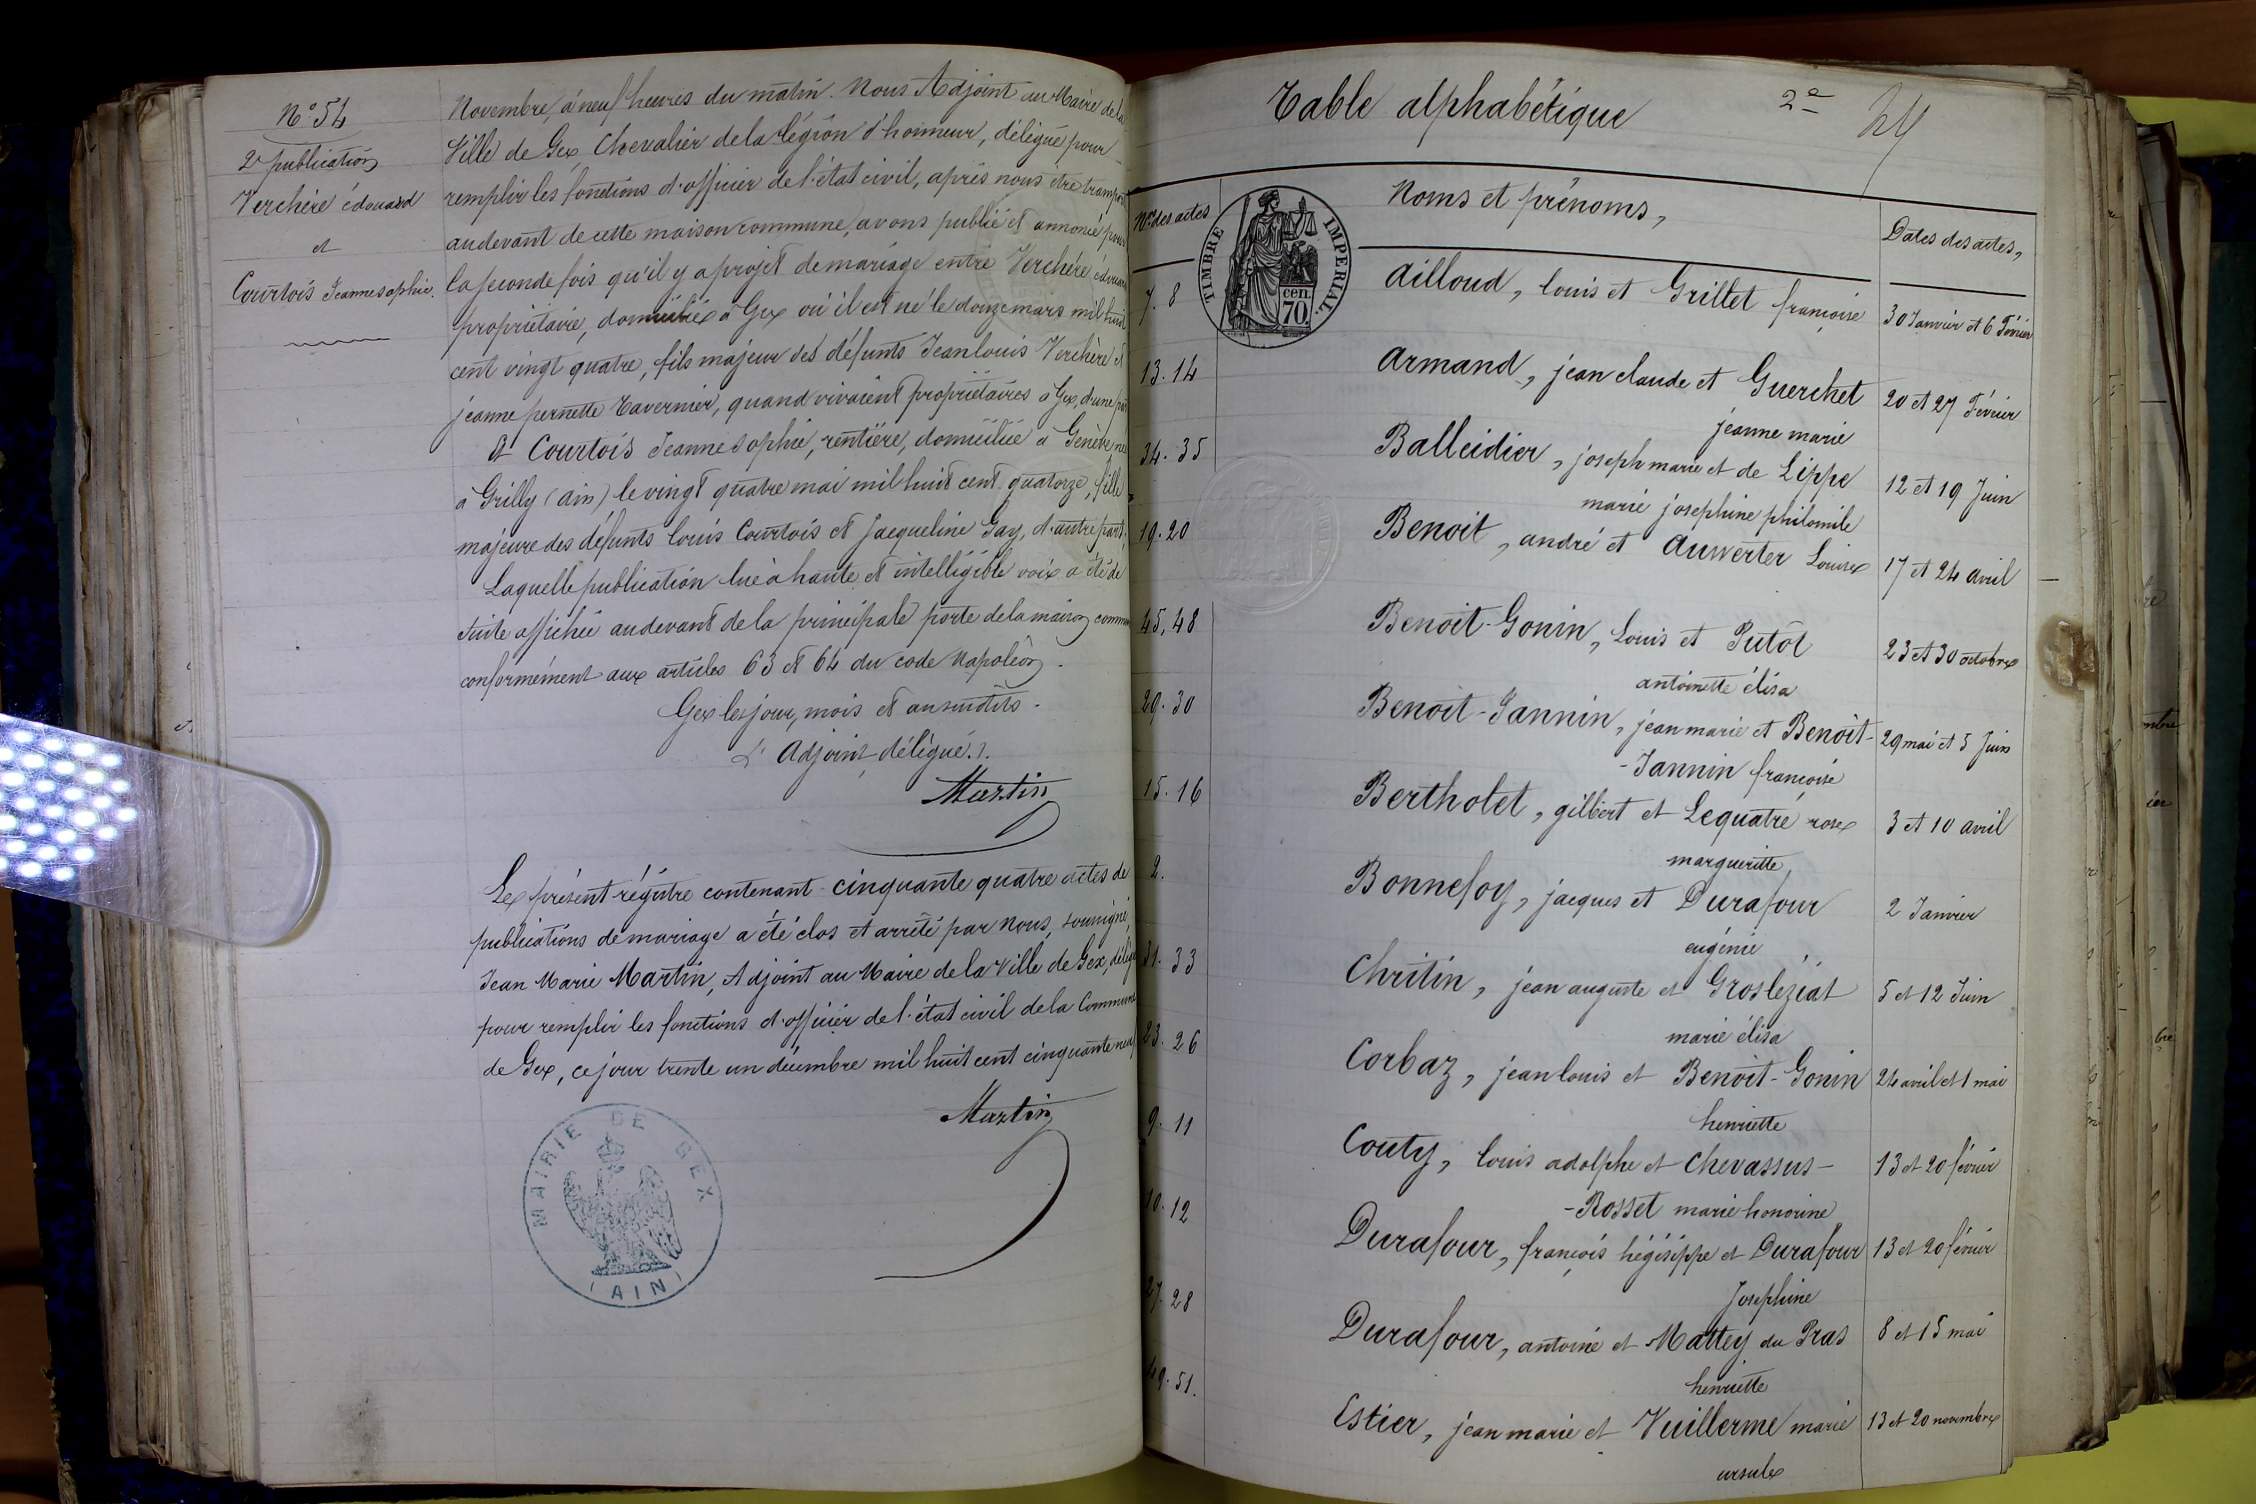 N° 54
2e publication
Verchère édouard
et
Courtois Jeanne sophie.
Novembre, à neuf heures du matin. Nous Adjoint au Maire de la
Ville de Gex, Chevalier de la légion d'honneur, délégué pour
remplir les fonctions d'officier de l'état civil, après nous être transporté
audevant de cette maison commune, avons publié et annoncé pour
la seconde fois qu'il y a projet de mariage entre Verchère édouard
propriétaire, domicilié à Gex où il est né le douze mars mil huit
cent vingt quatre, fils majeur des défunts Jean louis Verchère et
jeanne pernette Tavernier, quand vivaient propriétaires à Gex, d'une part
Et Courtois Jeanne Sophie, rentière, domiciliée à Genève née
à Grilly (ain) le vingt quatre mai mil huit cent quatorze, fille
majeure des défunts louis Courtois et Jacqueline Gay, d'autre part.
Laquelle publication lue à haute et intelligible voix a été de
suite affichée audevant de la principale porte de la maison commune
conformément aux articles 63 et 64 du code Napoléon.
Gex les jour, mois et an susdits.
L'Adjoint délégué.
Martin
Le présent régistre contenant cinquante quatre actes de
publications de mariage a été clos et arrêté par Nous, soussigné,
Jean Marie Martin, Adjoint au Maire de la Ville de Gex, délégué
pour remplir les fonctions d'officier de l'état civil de la Commune
de Gex, ce jour trente un décembre mil huit cent cinquante neuf
Martin
MAIRIE DE GEX
(AIN)
Table alphabétique 2e 24
Nos des actes Noms et prénoms, Dates des actes,
TIMBRE IMPERIAL
cen. 70
7. 8 Ailloud, louis et Grillet françoise 30 Janvier et 6 Février
13. 14 Armand, jean claude et Guerchet 20 et 27 Février
jeanne marie
34. 35 Balleidier, joseph marie et de Lippe 12 et 19 Juin
marie josephine philomile
19. 20 Benoit, andré et Auwerter Louise 17 et 24 avril
45, 48 Benoit-Gonin, Louis et Putôt 23 et 30 octobre
antoinette élisa
29. 30 Benoit-Jannin, jean marie et Benoit- 29 mai et 5 Juin
-Jannin françoise
15. 16 Bertholet, gilbert et Lequatre rose 3 et 10 avril
margueritte
2. Bonnefoy, jacques et Durafour 2 Janvier
eugénie
31. 33 Chritin, jean auguste et Grosléziat 5 et 12 Juin
marie élisa
23. 26 Corbaz, jean louis et Benoit-Gonin 24 avril et 1 mai
henriette
9. 11 Couty, louis adolphe et Chevassus- 13 et 20 février
-Rosset marie honorine
10. 12 Durafour, françois hégésippe et Durafour 13 et 20 février
Josephine
27. 28 Durafour, antoine et Mattey du Pras 8 et 15 mai
henriette
49. 51. Estier, jean marie et Vuillerme marie 13 et 20 novembre
ursule